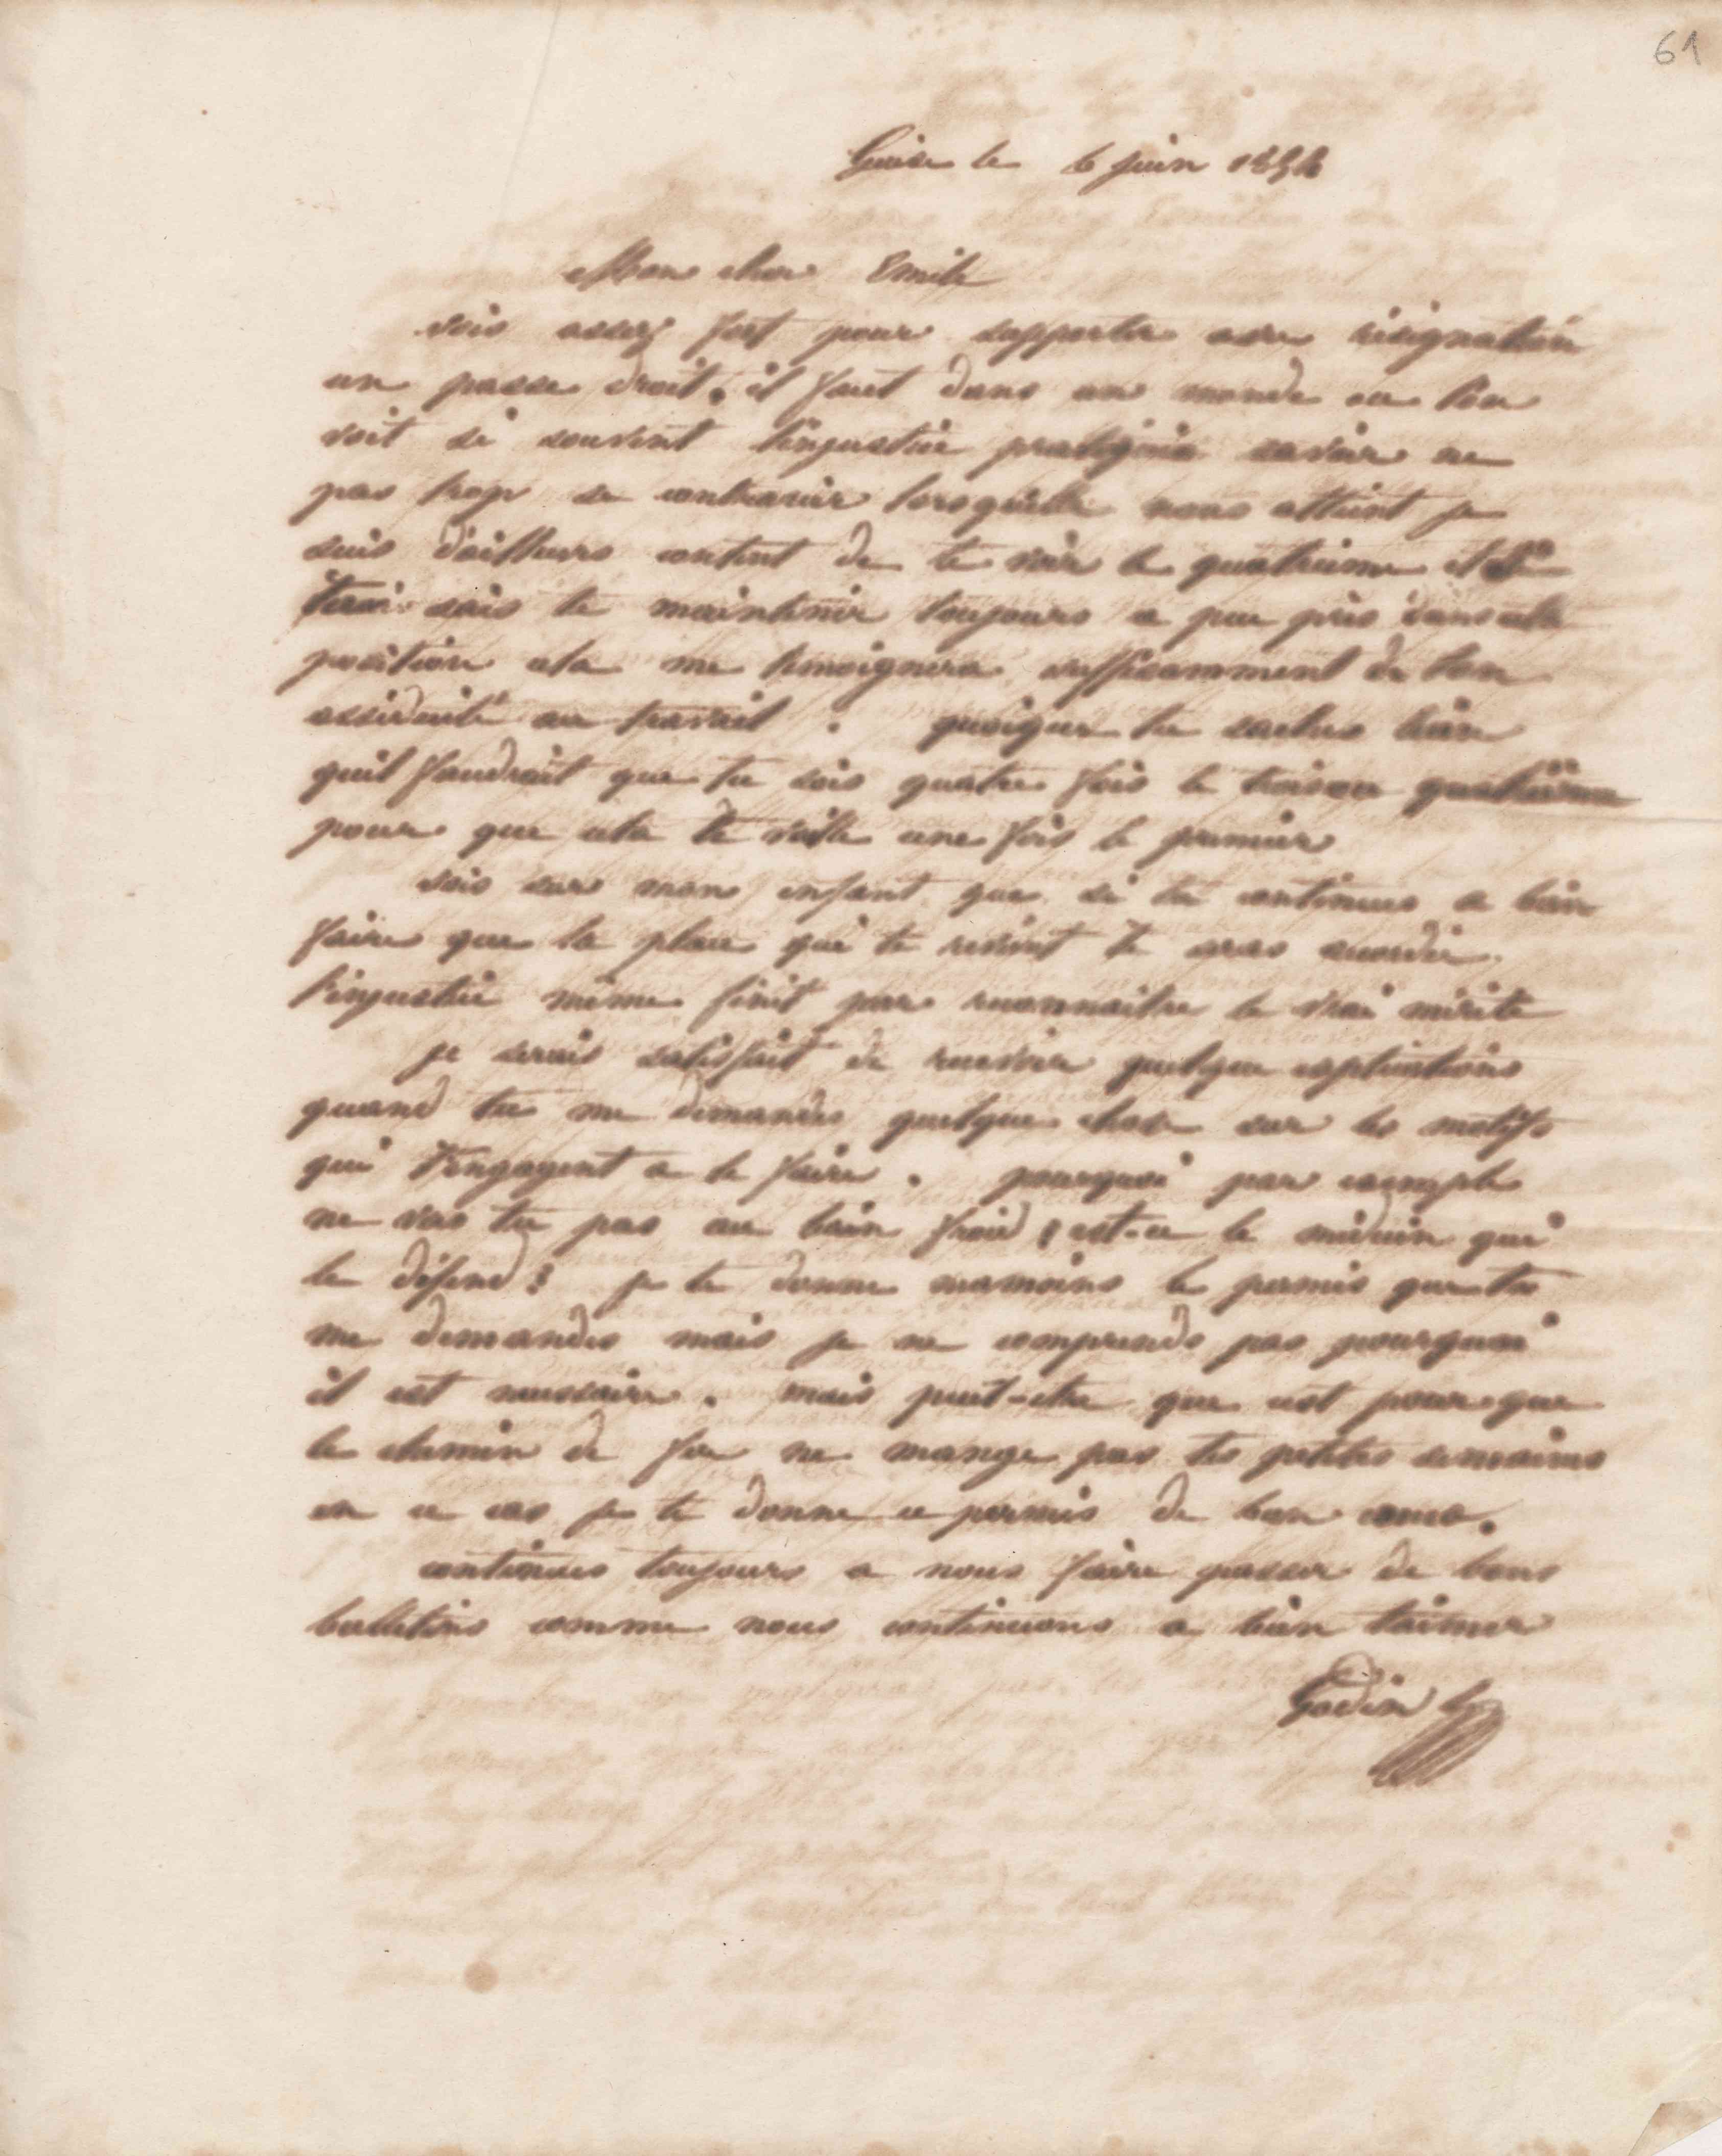 61
Guise le 6 juin 1854
Mon cher Emile
sois assez fort pour supporter avec résignation
un passe droit, il faut dans un monde ou lon
voit si souvent linjustice pratiquée savoir ne
pas trop se contrarier lorsquelle nous atteint je
suis d'ailleurs content de te voir le quatrieme et
sais te maintenir toujours a peu près dans cette
position cela me temoignera suffisamment de ton
assiduité au travail . quoique tu saches bien
quil faudrait que tu sois quatre fois le trois ou quatrième
pour que cela te vaille une fois le premier
sois sur mon enfant que si tu continues a bien
faire que la place qui te revient te sera accordée.
l'injustice même finit par reconnaitre le vrai mérite
je serais satisfait de recevoir quelque explications
quand tu me demandes quelque chose sur les motifs
qui t'engagent a le faire . pourquoi par exemple
ne vas tu pas au bain froid, est-ce le médecin qui
le défend? je te donne neamoins le permis que tu
me demandes mais je ne comprends pas pourquoi
il est necessaire . mais peut-etre que cest pour que
le chemin de fer ne mange pas tes petites semaines
en ce cas je te donne ce permis de bon coeur.
continues toujours a nous faire passer de bons
bulletins comme nous continuons a bien taimer
Godin